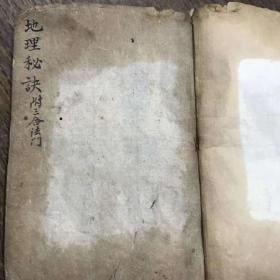 地理秘訣
附三合法門